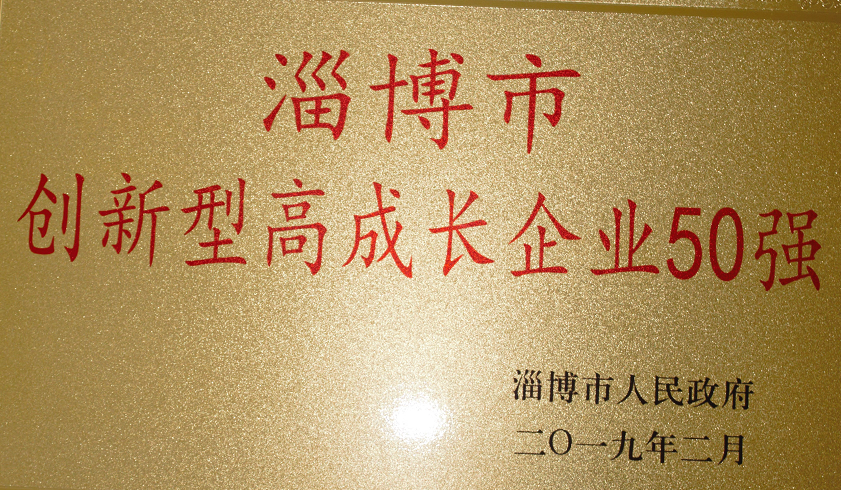 淄博市
创新型高成长企业50强
淄博市人民政府
二〇一九年二月